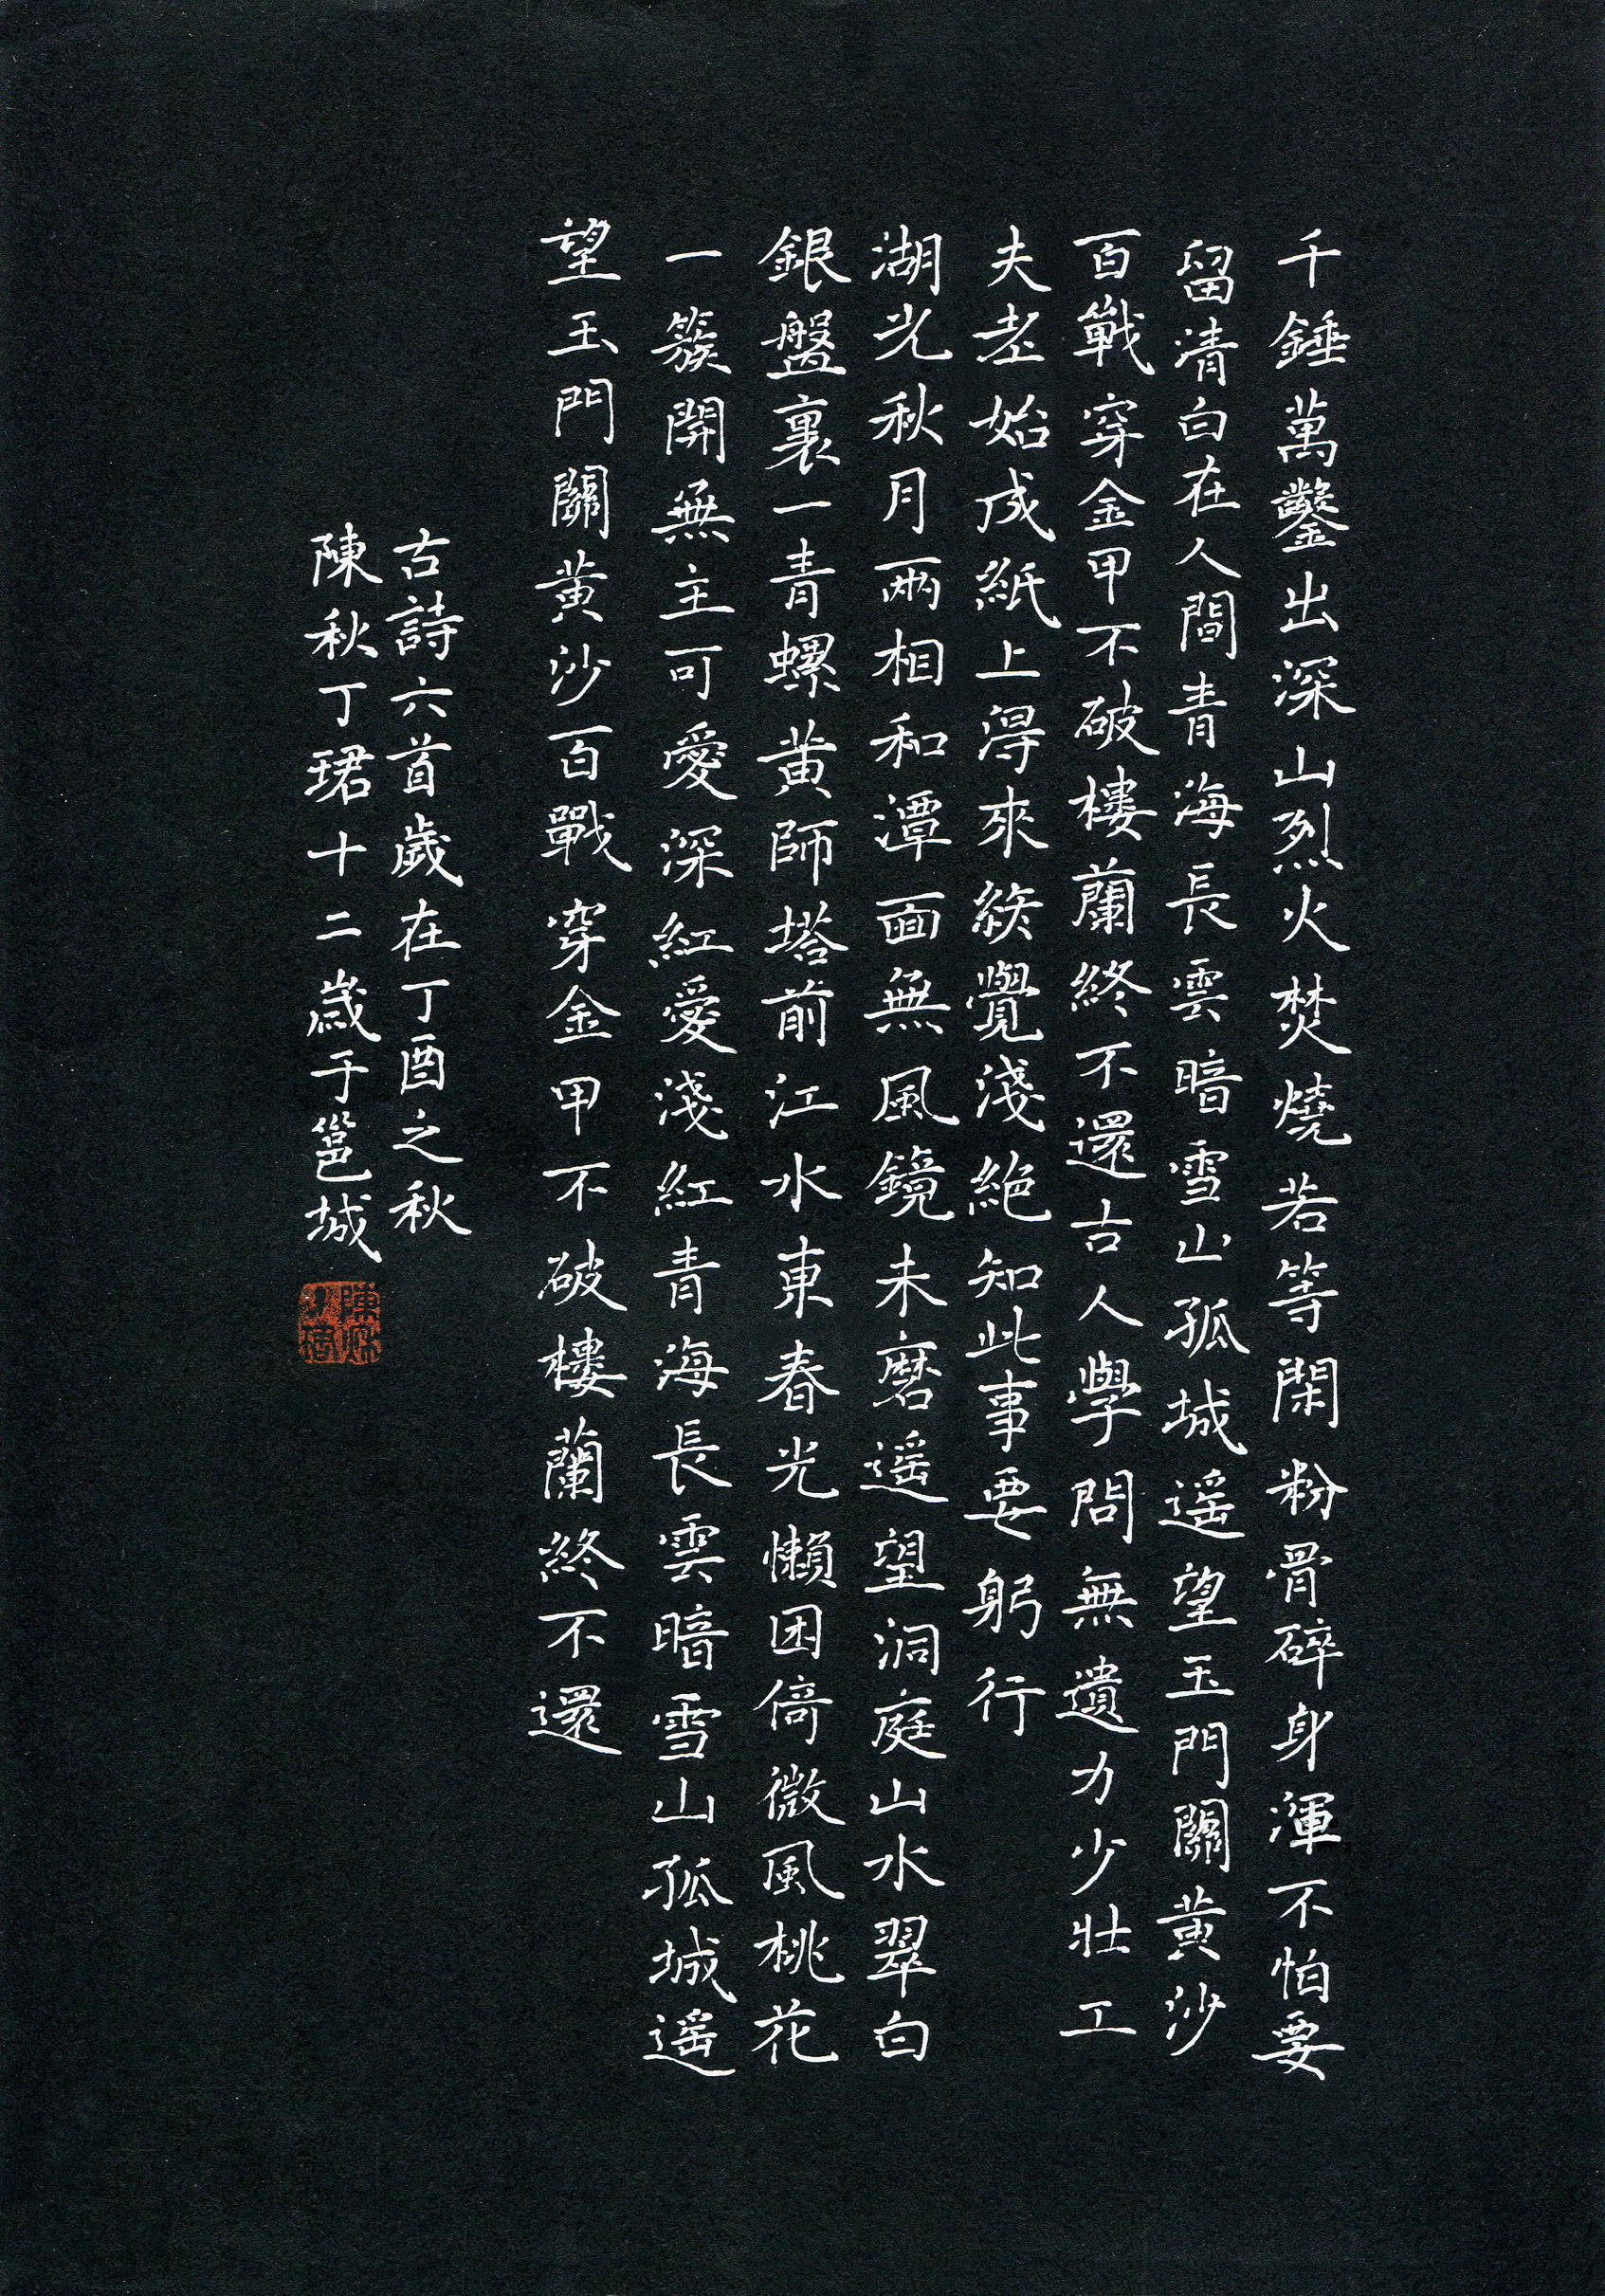 千錘萬鑿出深山烈火焚燒若等閑粉骨碎身渾不怕要
留清白在人間青海長雲暗雪山孤城遥望玉門關黄沙
百戰穿金甲不破樓蘭終不還古人學問無遺力少壯工
夫老始成紙上得來終覺淺絶知此事要躬行
湖光秋月兩相和潭面無風鏡未磨遥望洞庭山水翠白
銀盤裏一青螺黄師塔前江水東春光懶困倚微風桃花
一簇開無主可愛深紅愛淺紅青海長雲暗雪山孤城遥
望玉門關黄沙百戰穿金甲不破樓蘭終不還
古詩六首歲在丁酉之秋
陳秋丁珺十二歲于邕城